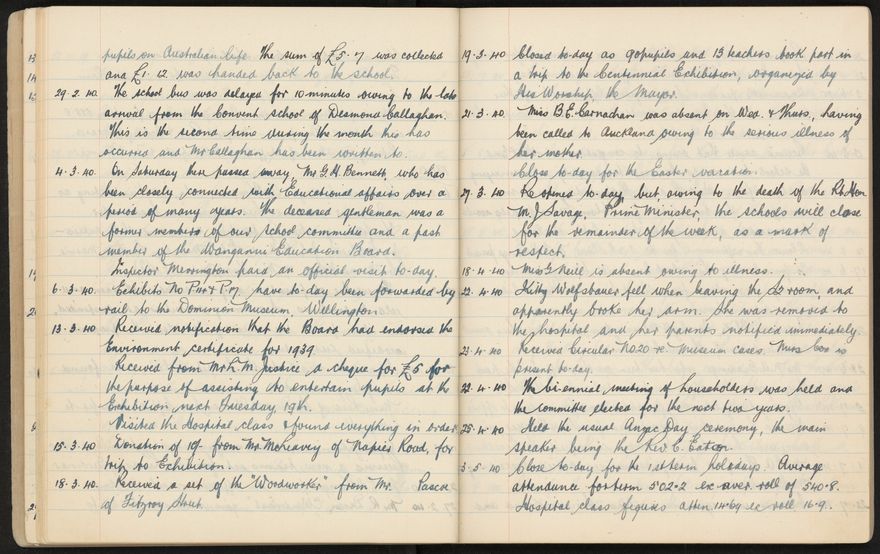 pupils on Australian life. The sum of £5-7 was collected
and £1-12 was handed back to the school.
29.2.40. The school bus was delayed for 10 minutes owing to the late
arrival from the Convent school of Desmond Callaghan.
This is the second time during the month this has
occurred and Mr Callaghan has been written to.
4.3.40. On Saturday there passed away, Mr G. H. Bennett, who has
been closely connected with Educational affairs over a
period of many years. The deceased gentleman was a
former member of our school committee and a past
member of the Wanganui Education Board.
Inspector paid an official visit to-day.
6.3.40. Exhibits No P114 & P.17 have to-day been forwarded by
rail to the Dominion Museum, Wellington
13.3.40 Received notification that the Board had endorsed the
Environment certificate for 1939
Received from Mr L. M. Justice a cheque for £5 for
the purpose of assisting to entertain pupils at the
Exhibition next Tuesday, 19th.
Visited the Hospital class & found everything in order
15.3.40 Donation of 10/- from Mr. of Napier Road, for
trip to Exhibition.
18.3.40. Receives a set of the "Woodworker" from Mr. Pascoe
of Fitzroy Street.
19.3.40 Closed to-day as 90 pupils and 13 teachers took part in
a trip to the Centennial Exhibition, organized by
His Worship, the Mayor.
21.3.40. Miss B. E. Carnachan was absent on Wed. & Thurs., having
been called to Auckland owing to the serious illness of
her mother.
Close to-day for the Easter vacation.
27.3.40 Reopened to-day but owing to the death of the Rt. Hon
M. J. Savage, Prime Minister, the schools will close
for the remainder of the week, as a mark of
respect.
18.4.40 Miss G Neill is absent owing to illness.
22.4.40 Kitty Wolfsbauer fell when leaving the room, and
apparently broke her arm. She was removed to
the hospital and her parents notified immediately.
23.4.40 Received Circular No.20 re Museum cases. Miss Cox is
present to-day.
22.4.40 The biennial meeting of householders was held and
the committee elected for the next two years.
25.4.40 Held the usual Anzac Day ceremony, the main
speaker being the Rev E. Eaton.
3.5.40 Close to-day for the 1st term holidays. Average
attendance for term 502.2 ex aver. roll of 540.8.
Hospital class figures atten. 14.64 ex roll 16.9.